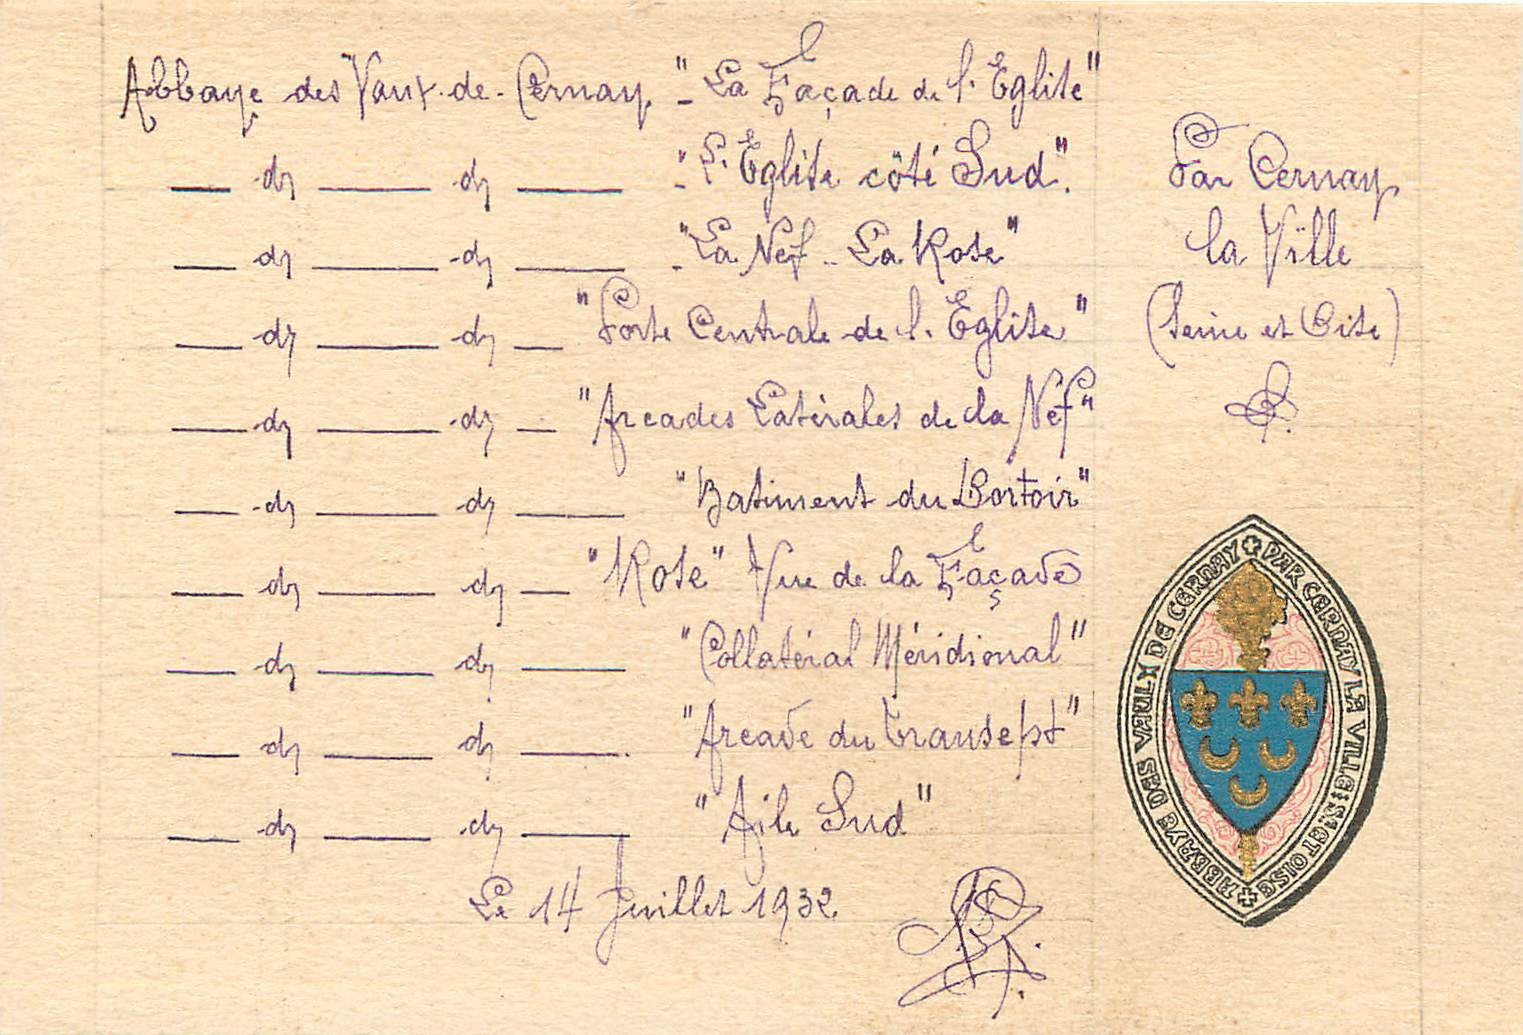 Abbaye des Vaux-de-Cernay - "La Façade de l'Eglise"
— do — do — - "L'Eglise côté Sud".
— do — do — - "La Nef - La Rose"
— do — do — "Porte Centrale de l'Eglise"
— do — do — "Arcades Latérales de la Nef"
— do — do — "Batiment du Dortoir"
— do — do — "Rose" Vue de la Façade
— do — do — "Collatéral Méridional"
— do — do — "Arcade du Transept"
— do — do — "Aile Sud"
Le 14 Juillet 1932
Par Cernay
la Ville
(Seine et Oise)
ABBAYE DES VAULX DE CERNAY
PAR CERNAY LA VILLE: S. ET OISE